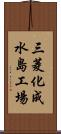 三菱化成
水島工場